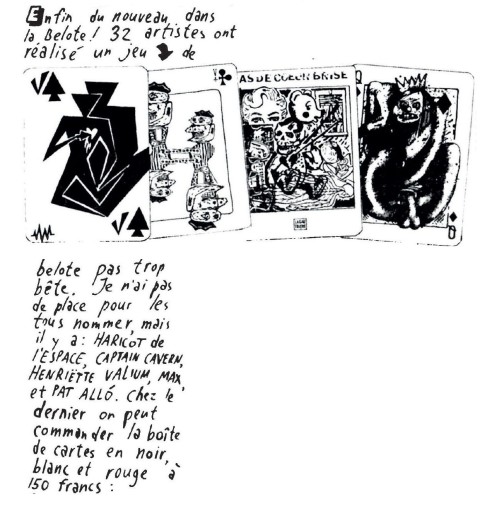 Enfin du nouveau dans
la Belote! 32 artistes ont
réalisé un jeu de
V
V
AS DE COEUR BRISÉ
Q
belote pas trop
bête. Je n'ai pas
de place pour les
tous nommer, mais
il y a: HARICOT de
l'ESPACE, CAPTAIN CAVERN,
HENRIETTE VALIUM, MAX
et PAT ALLÓ. Chez le
dernier on peut
commander la boîte
de cartes en noir,
blanc et rouge à
150 francs: